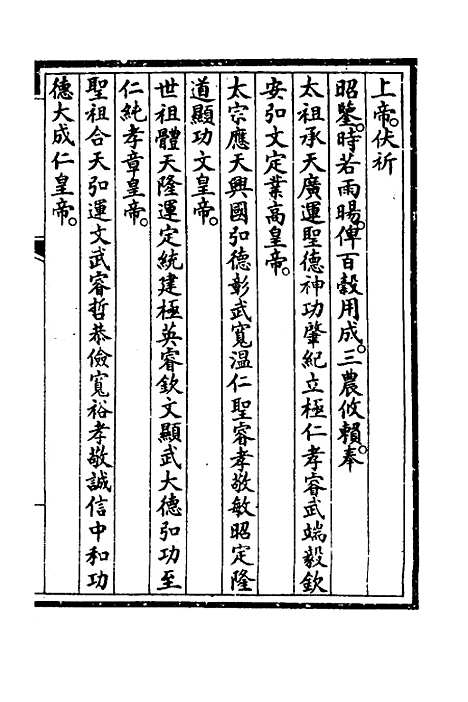 上帝。伏祈
昭鑒。時若雨暘。俾百穀用成。三農攸賴。奉
太祖承天廣運聖德神功肇紀立極仁孝睿武端毅欽
安弘文定業高皇帝。
太宗應天興國弘德彰武寬溫仁聖睿孝敬敏昭定隆
道顯功文皇帝。
世祖體天隆運定統建極英睿欽文顯武大德弘功至
仁純孝章皇帝。
聖祖合天弘運文武睿哲恭儉寬裕孝敬誠信中和功
德大成仁皇帝。